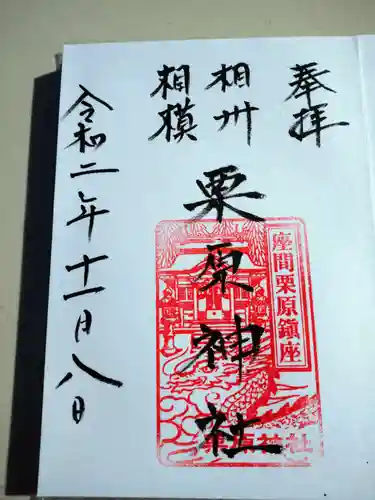 奉拝
相州
相模
栗原神社
座間栗原鎮座
令和二年十一月八日